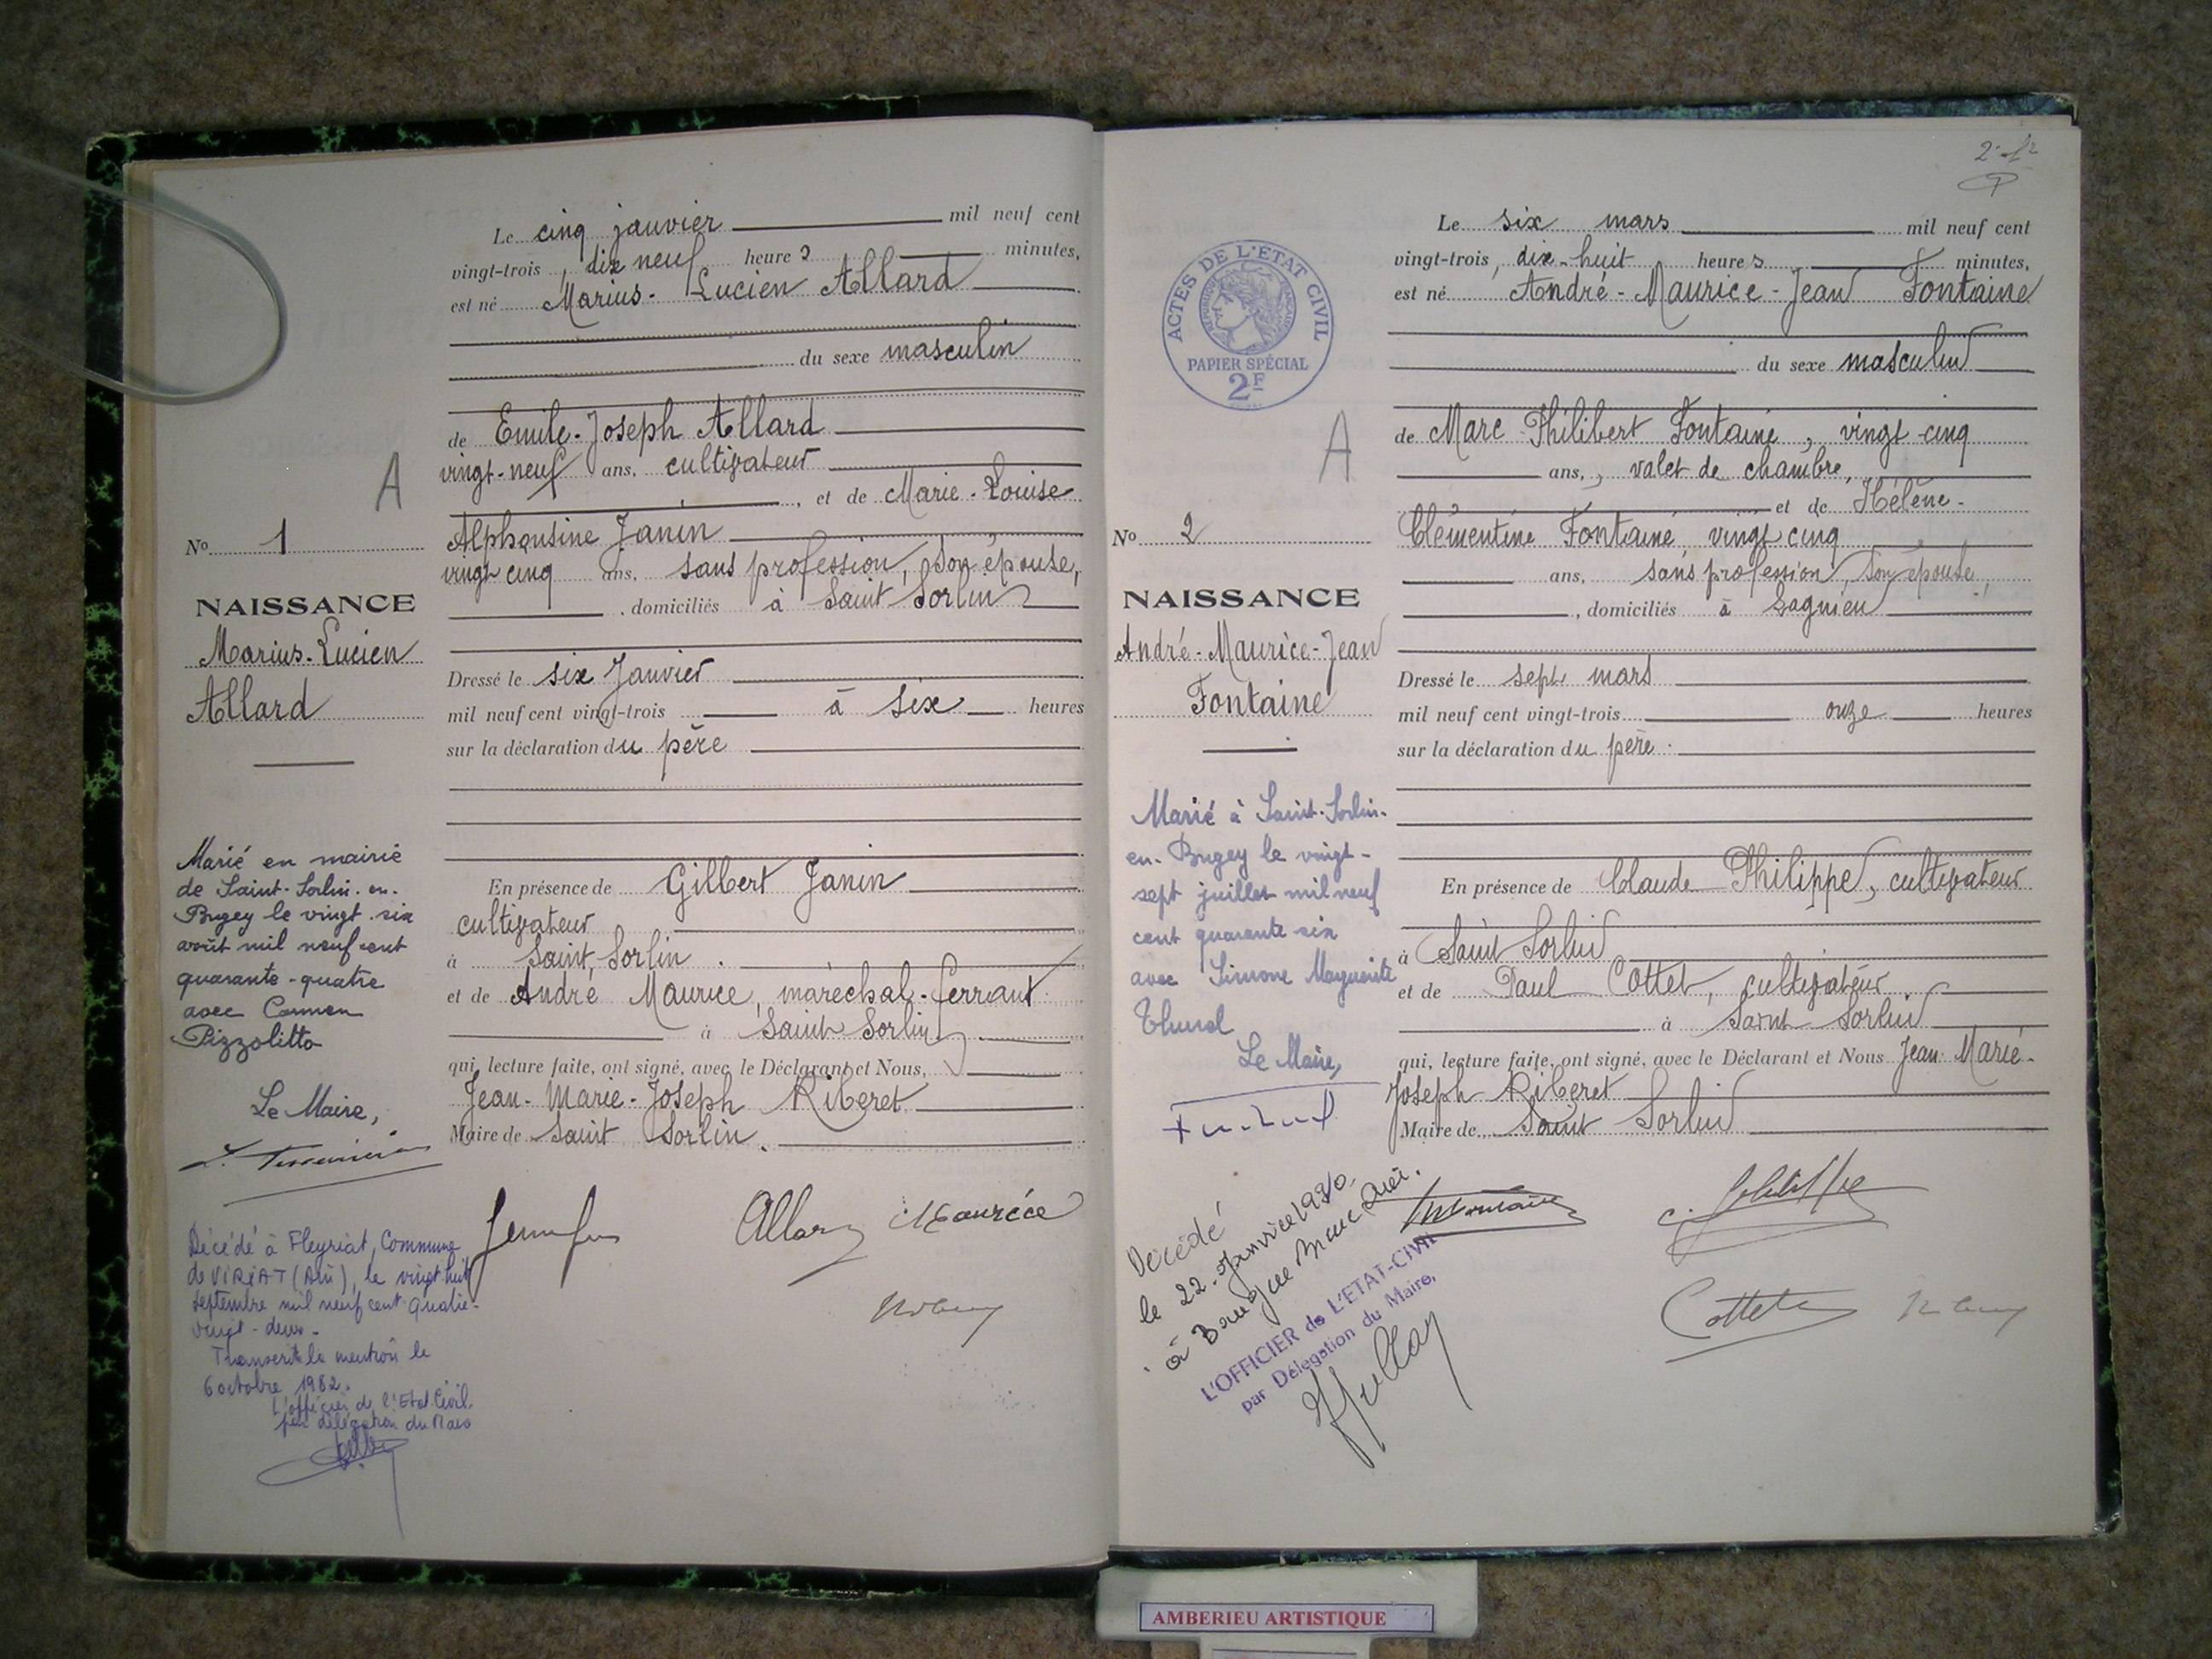 Le cinq janvier mil neuf cent
vingt-trois, dix neuf heures minutes,
est né Marius-Lucien Allard
du sexe masculin
de Emile-Joseph Allard
vingt-neuf ans, cultivateur
, et de Marie-Louise
Alphonsine Janin
vingt cinq ans, sans profession, son épouse,
, domiciliés à Saint Sorlin
Dressé le six Janvier
mil neuf cent vingt-trois à six heures
sur la déclaration du père
En présence de Gilbert Janin
cultivateur
à Saint Sorlin.
et de André Maurice, maréchal-ferrant
à Saint Sorlin
qui, lecture faite, ont signé, avec le Déclarant et Nous,
Jean-Marie-Joseph Riberet
Maire de Saint Sorlin.
Allard Maurice
A
No 1
NAISSANCE
Marius-Lucien
Allard
Marié en mairie
de Saint-Sorlin-en-
Bugey le vingt-six
août mil neuf cent
quarante-quatre
avec Carmen
Pizzolitto
Le Maire,
Décédé à Fleyriat, Commune
de VIRIAT (Ain), le vingt huit
septembre mil neuf cent quatre-
vingt-deux.
Transcrit la mention le
6 octobre 1982.
L'officier de l'Etat Civil.
par délégation du Maire
2
ACTES DE L'ÉTAT CIVIL
RÉPUBLIQUE FRANÇAISE
PAPIER SPÉCIAL
2F
Le six mars mil neuf cent
vingt-trois, dix-huit heures minutes,
est né André-Maurice-Jean Fontaine
du sexe masculin
de Marc Philibert Fontaine, vingt-cinq
ans, valet de chambre,
et de Hélène-
Clémentine Fontaine, vingt cinq
ans, sans profession, son épouse,
, domiciliés à Lagnieu
Dressé le sept mars
mil neuf cent vingt-trois onze heures
sur la déclaration du père.
En présence de Claude Philippe, cultivateur
à Saint Sorlin
et de Paul Cottet, cultivateur
à Saint Sorlin
qui, lecture faite, ont signé, avec le Déclarant et Nous Jean-Marie-
Joseph Riberet
Maire de Saint Sorlin
Cottet
A
No 2
NAISSANCE
André-Maurice-Jean
Fontaine
Marié à Saint-Sorlin-
en-Bugey le vingt-
sept juillet mil neuf
cent quarante six
avec Simone Marguerite
Le Maire,
Décédé
le 22 Janvier
à
L'OFFICIER de L'ETAT-CIVIL
par Délégation du Maire,
AMBERIEU ARTISTIQUE